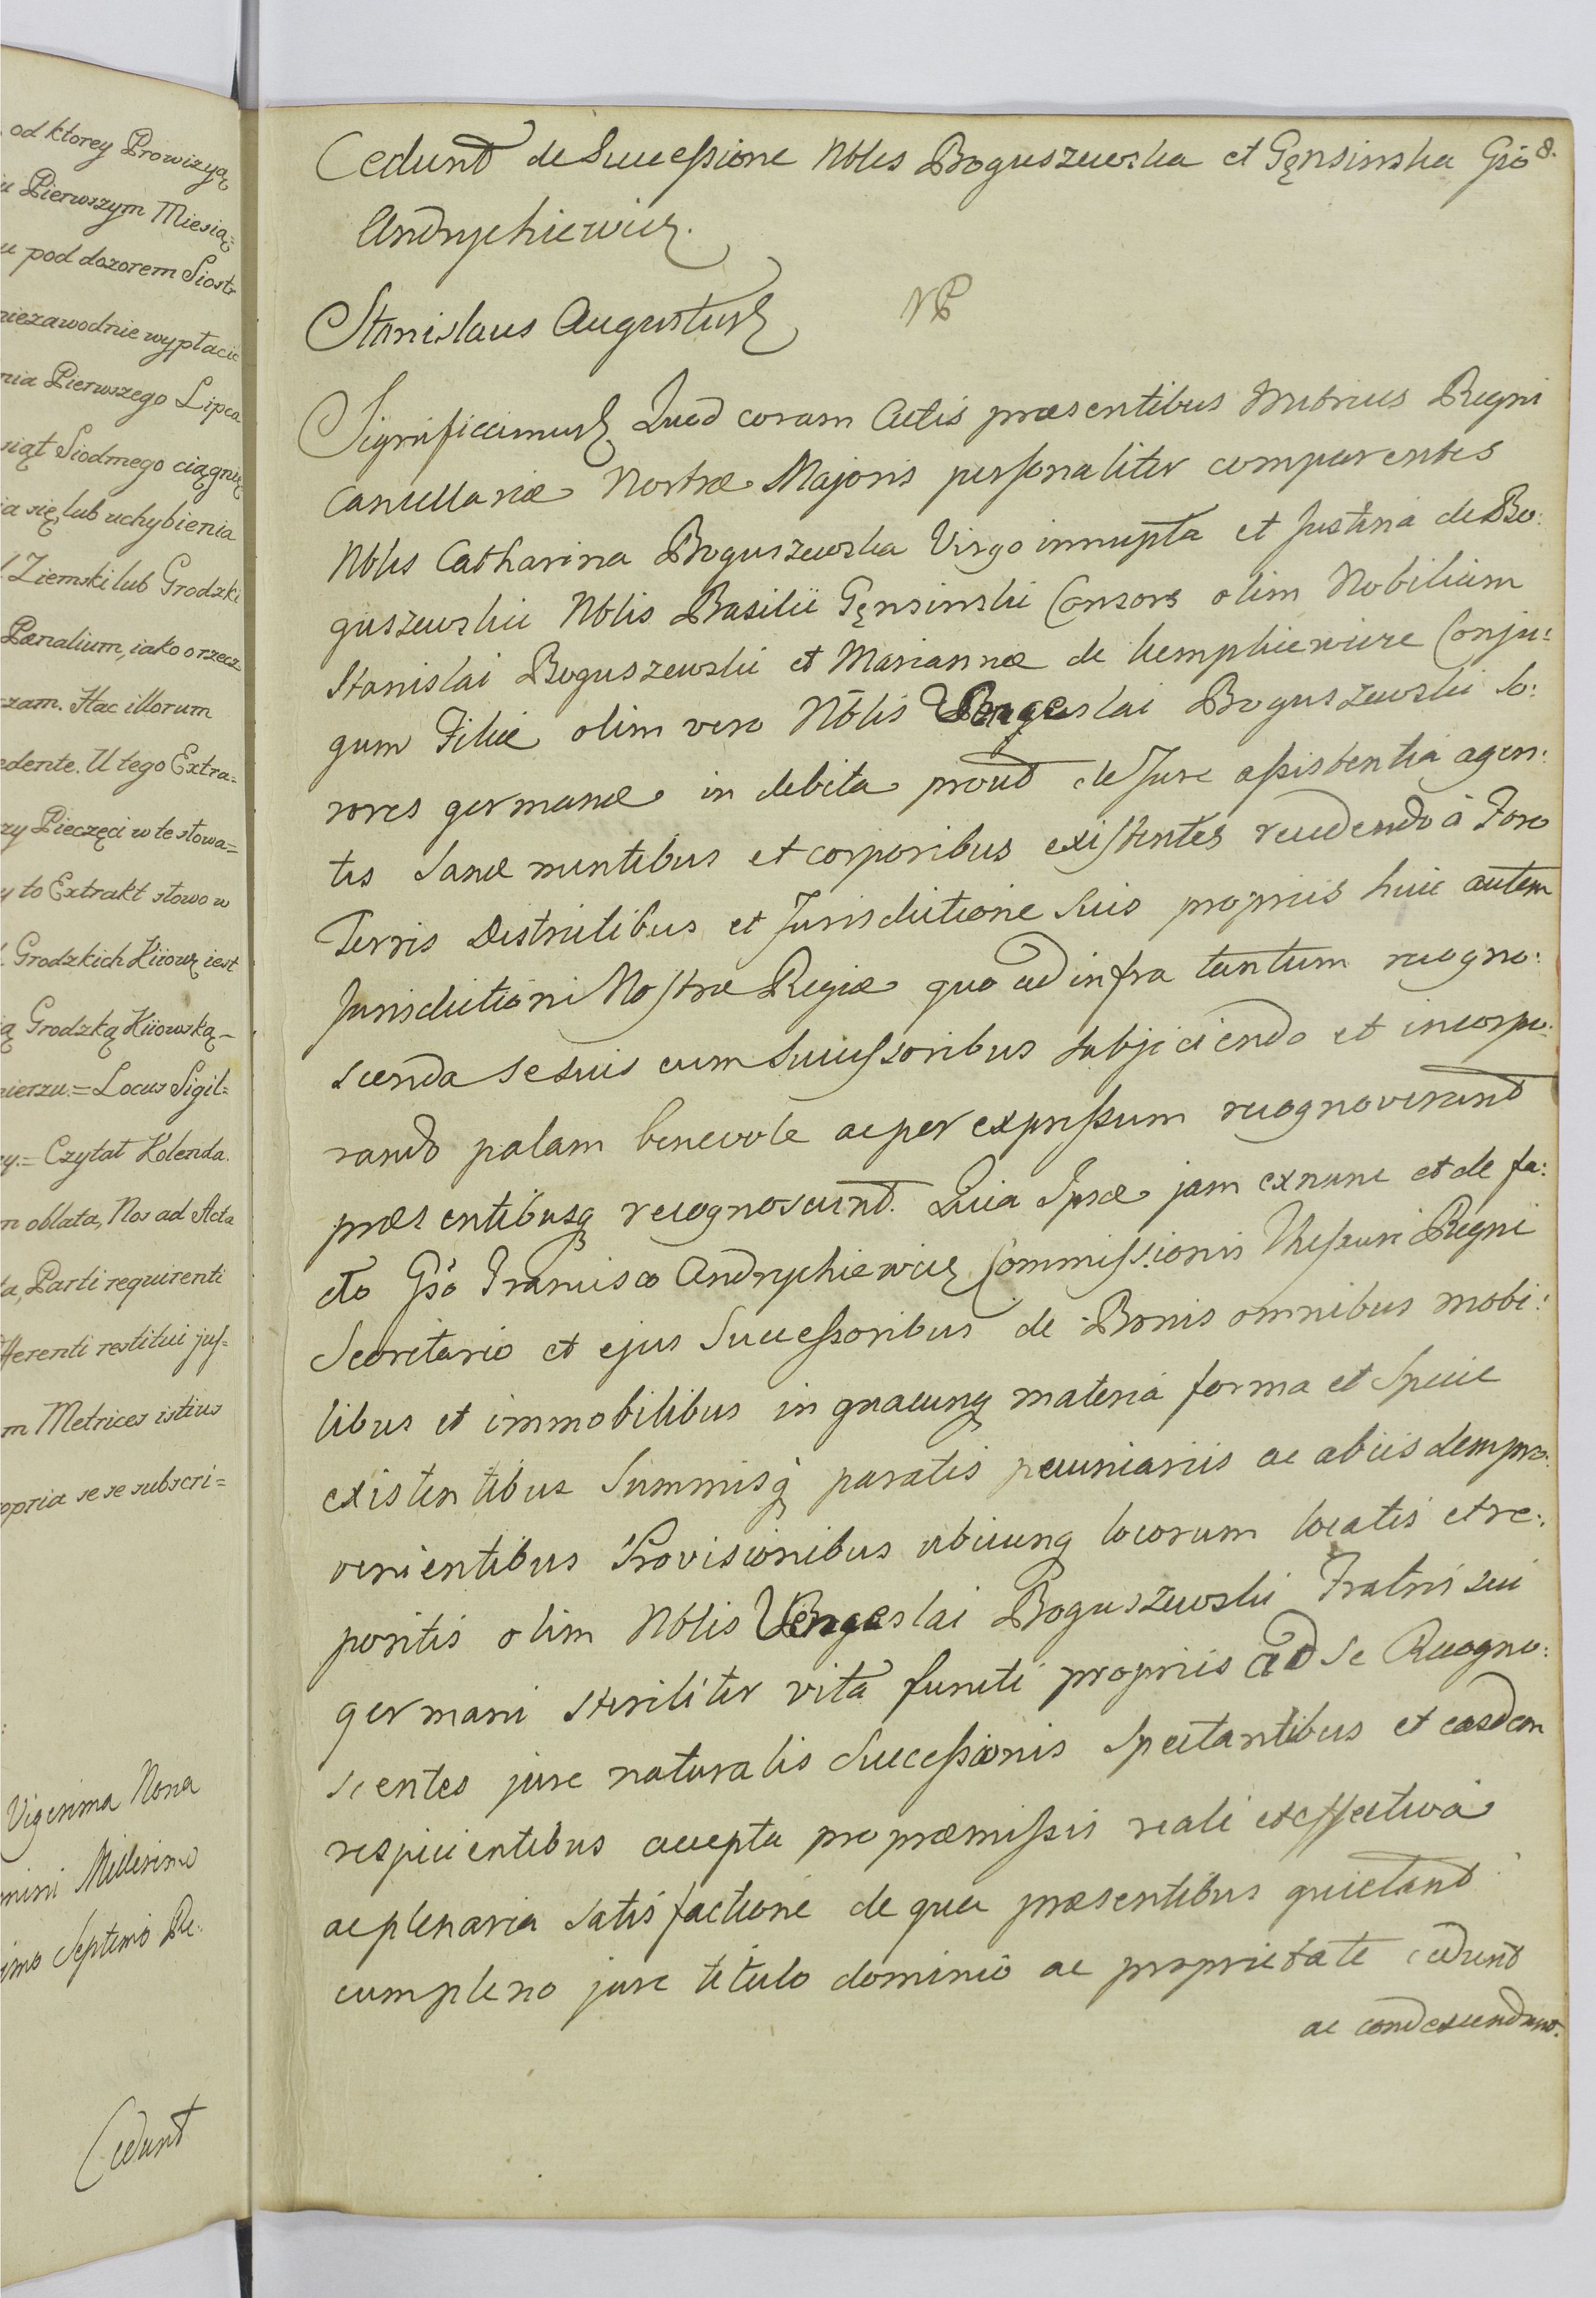 od ktorey Prowizyą
u Pierwszym Miesią=
u pod dozorem Siostr
niezawodnie wypłacić
nia Pierwszego Lipca
siąt Siodmego ciągnię
ia się, lub uchybienia
Ziemski lub Grodzki
Pænalium, iako orzecz
zam. Hac illorum
edente. U tego Extra=
zy Pieczęci w te słowa=
y to Extrakt słowo w
Grodzkich Kiiow: iest
ą Grodzką Kiiowską
nierzu.= Locus Sigil=
y.= Czytał Kolenda.
m oblata, Nos ad Acta
ta, Parti requirenti
fferenti restitui jus=
m Metrices istius
opria se se subscri=
Vigesima Nona
mini Millesimo
imo Septimo Re:
Cedunt
Cedunt de Successione Nbles Boguszewska et Gęnsinska Gsō 8.
Andrychiewicz.
Stanislaus Augustus
Significamus Quod coram Actis præsentibus Metrices Regni
Cancellariæ Nostræ Majoris personaliter comparentes
Nbles Catharina Boguszewska Virgo innupta et Justina de Bo:
guszewskie Nblis Basilii Gęnsinski Consors olim Nobilium
Stanislai Boguszewski et Mariannæ de Kempkiewicze Conju:
gum Filiæ olim vero Nblis Boguszewski So:
rores germanæ in debita prout de Jure assistentia agen:
tes Sanæ mentibus et corporibus existentes recedendo à Foro
Terris Districtibus et Jurisdictione Suis propriis huic autem
Jurisdictioni Nostræ Regiæ quo ad infra tantum recogno:
scenda se suis cum Successoribus subjiciendo et incorpo:
rando palam benevole ac per expressum recognoverunt
præsentibusq recognoscunt. Quia Ipsæ jam exnunc et de fa:
cto Gsō Francisco Andrychiewicz Commissionis Thesauri Regni
Secretario et ejus Successoribus de Bonis omnibus mobi:
libus et immobilibus in quacunq materia forma et Specie
existentibus Summisq paratis pecuniariis ac ab iisdem pro:
venientibus Provisionibus ubicunq locorum locatis et re:
pertis olim Nblis Boguszewski Fratris sui
germani steriliter vita functi propriis ad se Recogno:
scentes jure naturalis Successionis Spectantibus et easdem
respicientibus accepta pro præmissis reali et effectiva
ac plenaria satisfactione de qua præsentibus quietant
cum pleno jure titulo dominio ac proprietate cedunt
ac condescendunt.